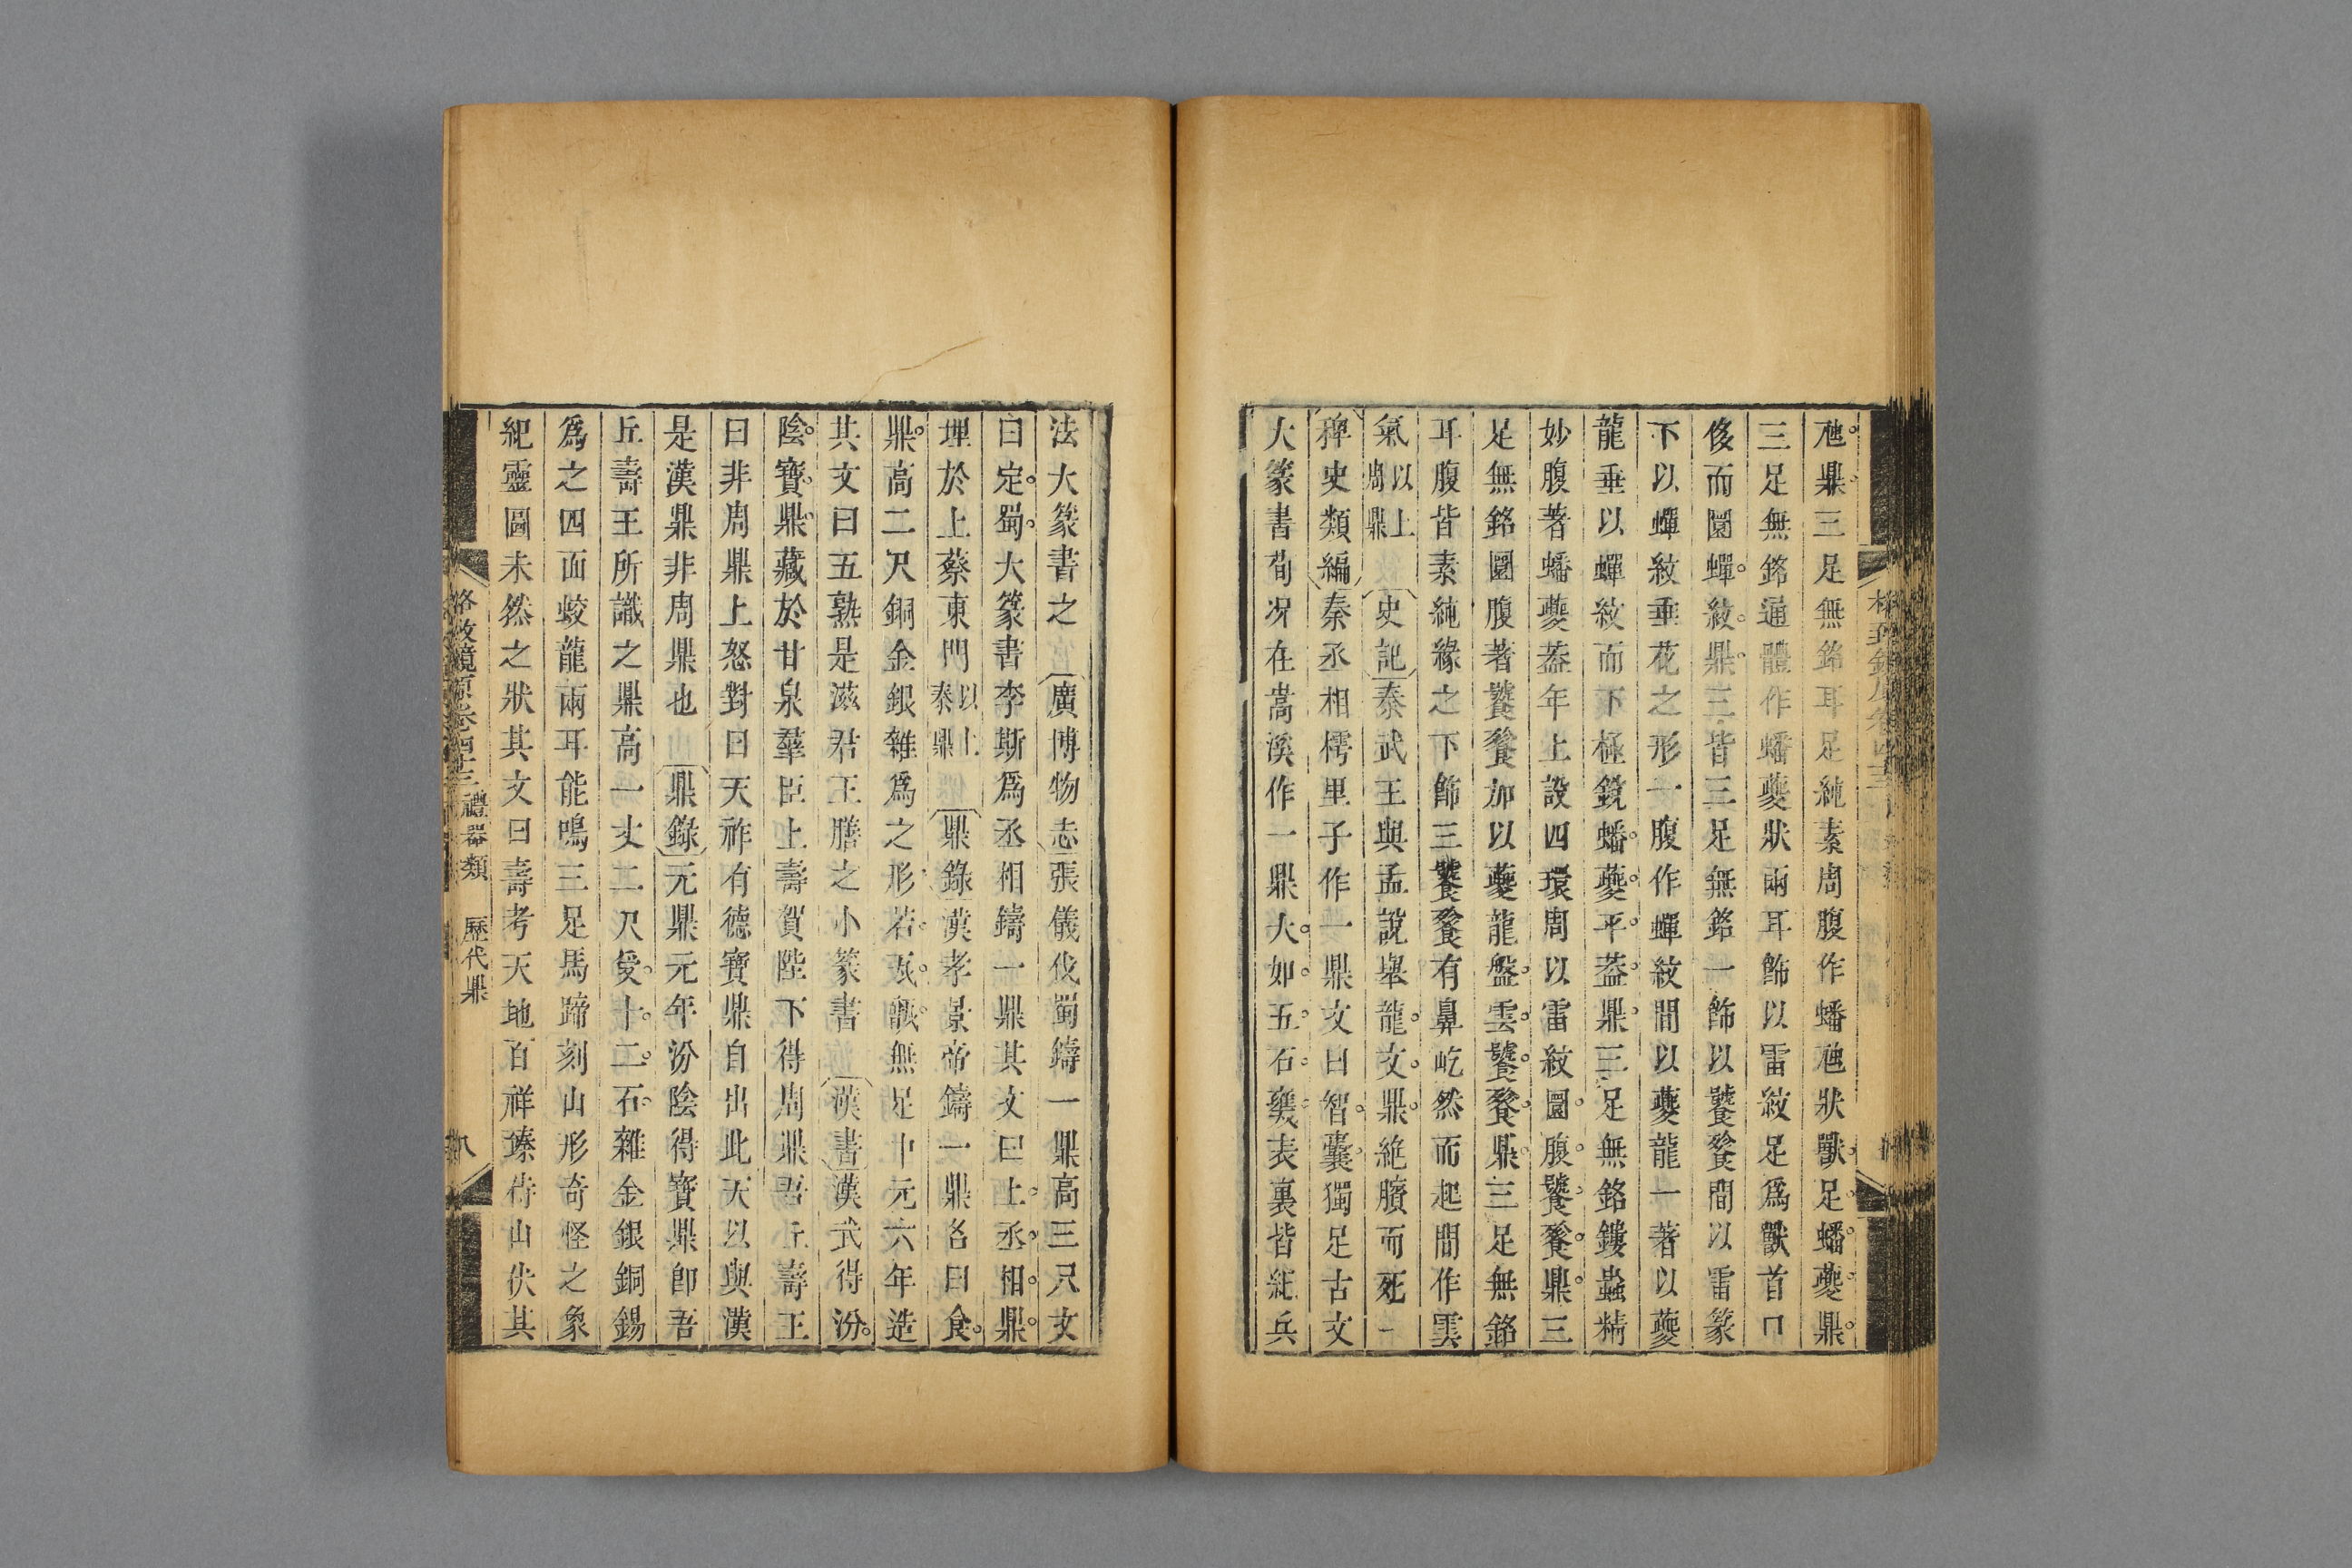 虺鼎三足無銘耳足純素周腹作蟠虺狀獸足蟠夔鼎
三足無銘通體作蟠夔狀兩耳飾以雷紋足爲獸首口
侈而圜蟬紋鼎三皆三足無銘一飾以饕餮間以雷篆
下以蟬紋垂花之形一腹作蟬紋間以夔龍一著以夔
龍垂以蟬紋而下極鏡蟠夔平葢鼎三足無銘鏤蟲精
妙腹著蟠夔葢年上設四環周以雷紋圜腹饕餮鼎三
足無銘圜腹著饕餮加以夔龍盤雲饕餮鼎三足無銘
耳腹皆素純緣之下飾三饕餮有鼻屹然而起間作雲
氣以上周鼎史記秦武王與孟說舉龍文鼎絕臏而死一
稗史類編秦丞相樗里子作一鼎文曰智囊獨足古文
大篆書荀况在嵩溪作一鼎大如五石甕表裏皆紀兵
法大篆書之廣博物志張儀伐蜀鑄一鼎高三尺文
曰定蜀大篆書李斯爲丞相鑄一鼎其文曰上丞相鼎
埋於上蔡東門以上秦鼎鼎錄漢孝景帝鑄一鼎名曰食
鼎高二尺銅金銀雜爲之形若瓦甑無足中元六年造
其文曰五熟是滋君王膳之小篆書漢書漢武得汾
陰寶鼎藏於甘泉羣臣上壽賀陛下得周鼎吾丘壽王
曰非周鼎上怒對曰天祚有德寶鼎自出此天以與漢
是漢鼎非周鼎也鼎錄元鼎元年汾陰得寶鼎卽吾
丘壽王所識之鼎高一丈二尺受十二石雜金銀銅錫
爲之四面蛟龍兩耳能鳴三足馬蹄刻山形奇怪之象
紀靈圖未然之狀其文曰壽考天地百祥臻侍山伏其
格致鏡原卷四十三 禮器類 歷代鼎 八